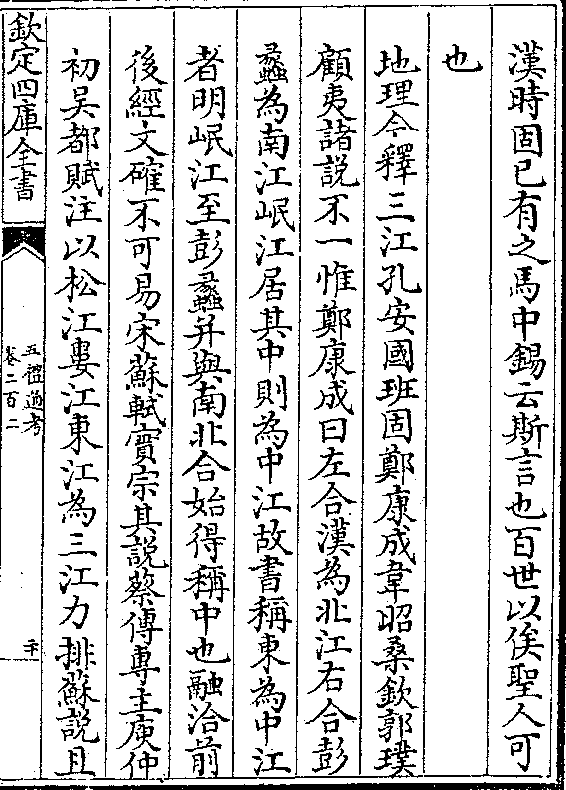 漢時固已有之馬中錫云斯言也百世以俟聖人可
也
地理今釋三江孔安國班固鄭康成韋昭桑欽郭璞
顧夷諸說不一惟鄭康成曰左合漢為北江右合彭
蠡為南江岷江居其中則為中江故書稱東為中江
者明岷江至彭蠡并與南北合始得稱中也融洽前
後經文確不可易宋蘇軾實宗其說蔡傳專主庾仲
初吴都賦注以松江婁江東江為三江力排蘇說且
欽定四庫全書
五禮通考
卷二百二
二十